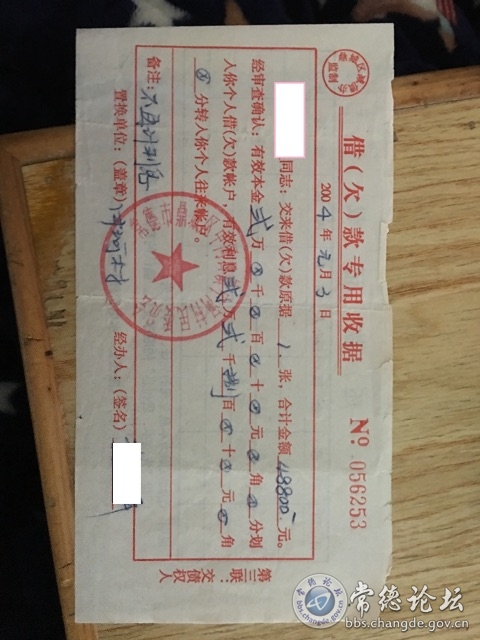 借(欠)款专用收据
监制
2004年元月3日
№ 056253
同志：交来借(欠)款原据1张，合计金额48800元。
经审查确认：有效本金贰万⊗千⊗百⊗十⊗元⊗角⊗分划
入你个人借(欠)款帐户，有效利息贰万贰千捌百⊗十⊗元⊗角
⊗分转入你个人往来帐户。
备注：不再计利息
置换单位：(盖章)
经办人：(签名)
第三联：交债权人
常德论坛
bbs.changde.gov.cn